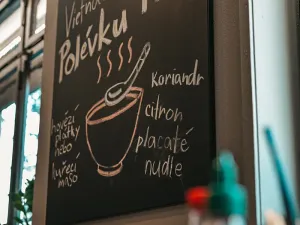 Vietna
Polévku
Koriandr
citron
placaté
nudle
hovězí
plátky
nebo
kuřecí
maso